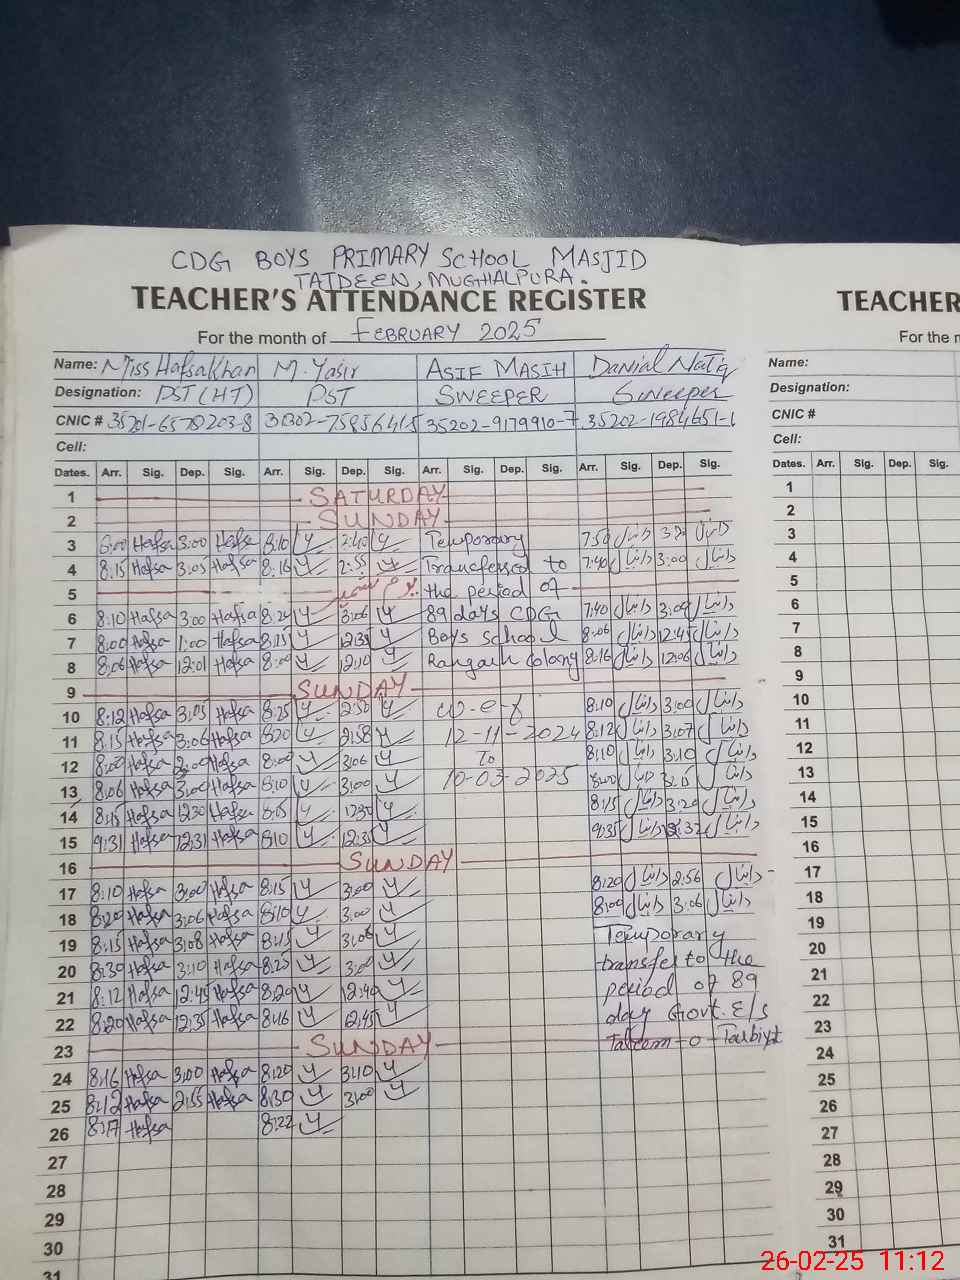 CDG BOYS PRIMARY SCHOOL MASJID
TAJDEEN, MUGHALPURA.
TEACHER'S ATTENDANCE REGISTER
For the month of FEBRUARY 2025
Name: Miss Hafsa Khan M. Yasir ASIF MASIH Danial Natiq
Designation: PST (HT) PST SWEEPER Sweeper
CNIC # 35202-9179910-7
Cell:
Dates. Arr. Sig. Dep. Sig. Arr. Sig. Dep. Sig. Arr. Sig. Dep. Sig. Arr. Sig. Dep. Sig.
1 SATURDAY
2 SUNDAY
3 Hafsa 3:00 Hafsa 8:10 2:40 Temporary 7:50 دانیال دانیال
4 8:15 Hafsa 3:05 Hafsa 8:16 2:55 Transfered to 7:40 دانیال 3:00 دانیال
5 the period of
6 8:10 Hafsa 3:00 Hafsa 3:06 89 days CDG 7:40 دانیال 3:00 دانیال
7 8:00 Hafsa 1:00 Hafsa 8:15 Boys school 8:06 دانیال 12:45 دانیال
8 8:06 Hafsa 12:01 Hafsa 8:00 12:10 Rangarh Colony 8:16 دانیال 12:06 دانیال
9 SUNDAY
10 8:12 Hafsa 3:05 Hafsa 8:25 2:50 w.e.f 8:10 دانیال 3:00 دانیال
11 8:15 Hafsa 3:06 Hafsa 2:58 12-11-2024 8:12 دانیال 3:07 دانیال
12 8:00 Hafsa Hafsa 8:00 3:06 To 8:10 دانیال 3:10 دانیال
13 8:06 Hafsa 3:00 Hafsa 8:10 3:00 10-03-2025 8:00 دانیال
14 8:15 Hafsa 12:30 Hafsa 8:05 12:30 8:15 دانیال 3:20 دانیال
15 9:31 Hafsa 12:31 Hafsa 8:10 12:35 9:35 دانیال دانیال
16 SUNDAY
17 8:10 Hafsa 3:00 Hafsa 8:15 3:00 8:20 دانیال 2:56 دانیال
18 8:20 Hafsa 3:06 Hafsa 8:10 3:00 8:00 دانیال 3:06 دانیال
19 8:15 Hafsa 3:08 Hafsa 8:15 3:06 Temporary
20 8:30 Hafsa 3:10 Hafsa 8:25 3:00 transfer to the
21 8:12 Hafsa 12:45 Hafsa 8:20 12:40 period of 89
22 8:20 Hafsa 12:35 Hafsa 8:16 12:45 day Govt. E/S
23 SUNDAY Taleem-o-Tarbiyat
24 8:16 Hafsa 3:00 Hafsa 8:20 3:10
25 8:12 Hafsa 2:55 Hafsa 8:30 3:00
26 8:17 Hafsa 8:22
27
28
29
30
31
TEACHER
For the m
Name:
Designation:
CNIC #
Cell:
Dates. Arr. Sig. Dep. Sig.
1
2
3
4
5
6
7
8
9
10
11
12
13
14
15
16
17
18
19
20
21
22
23
24
25
26
27
28
29
30
31
26-02-25 11:12